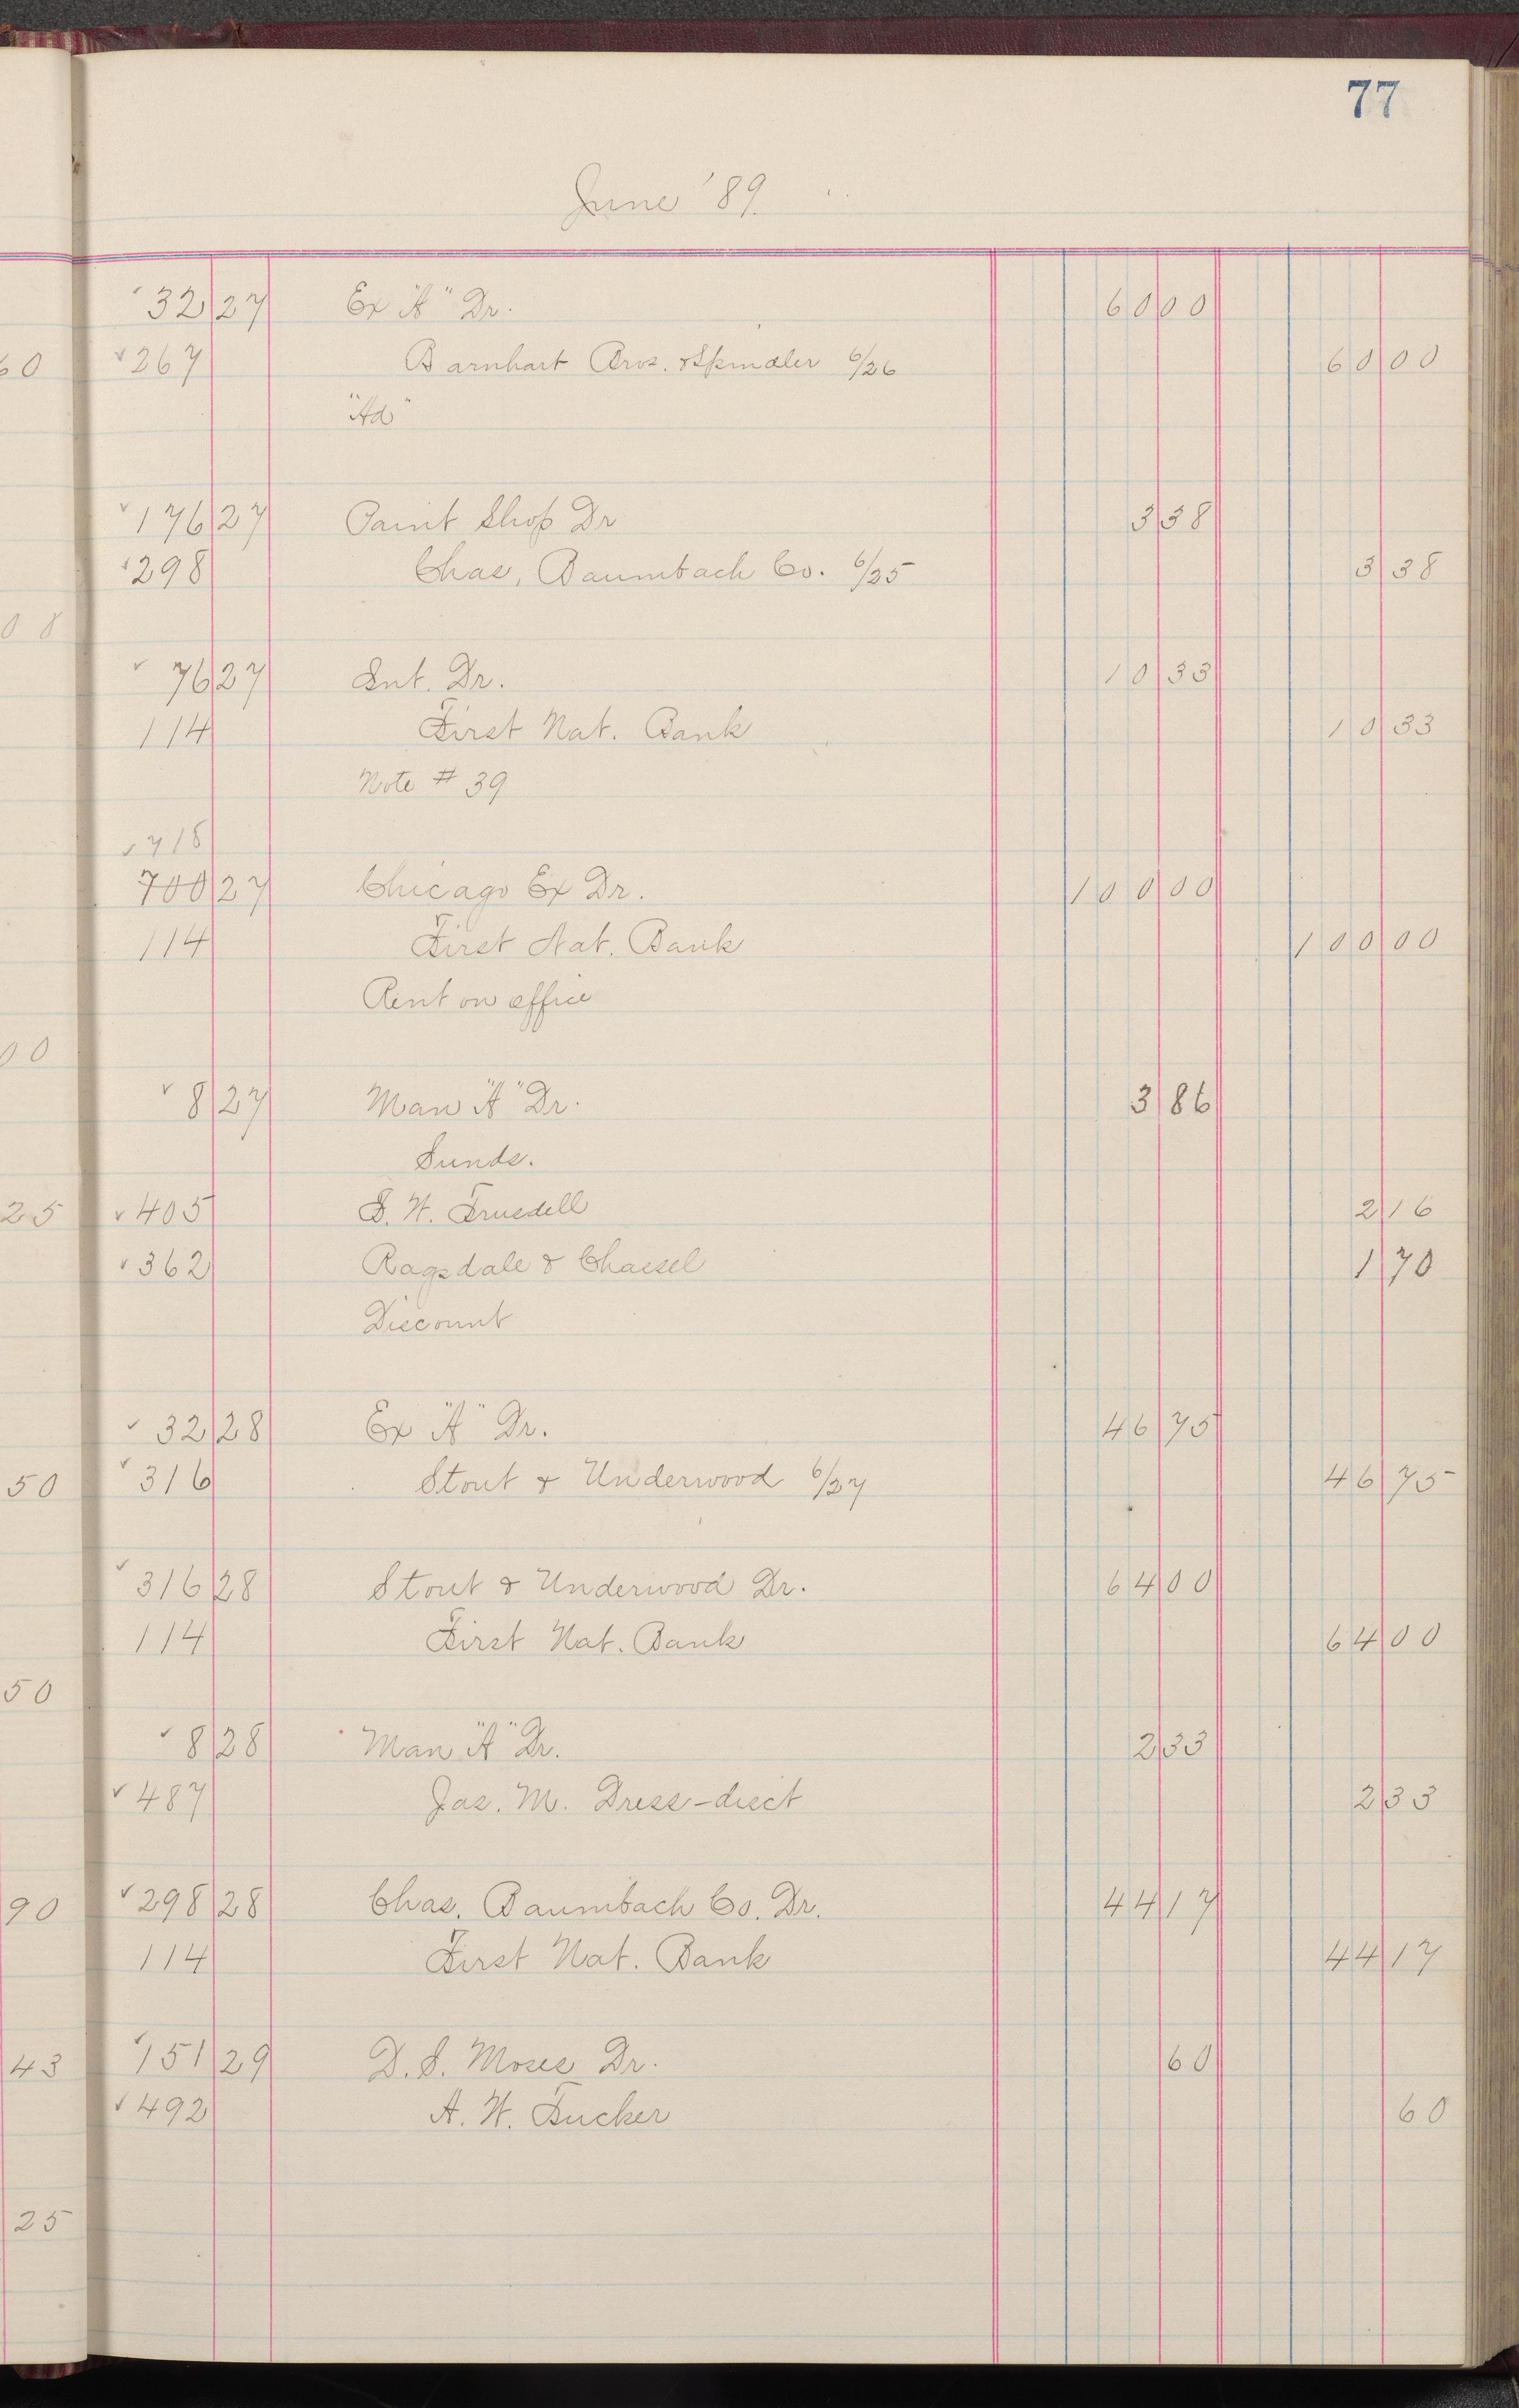 77
June '89.
✓32 27 Ex "A" Dr. 60 00
60 ✓267 Barnhart Bros. & Spindler 6/26 60 00
"Ad"
✓176 27 Paint Shop Dr 3 38
✓298 Chas. Baumbach Co. 6/25 3 38
08
✓76 27 Int. Dr. 10 33
114 First Nat. Bank 10 33
Note # 39
✓718
700 27 Chicago Ex Dr. 100 00
114 First Nat. Bank 100 00
Rent on office
00
✓8 27 Man "A" Dr. 3 86
Sunds.
25 ✓405 S. W. Trusdell 2 16
✓362 Ragsdale & Chassel 1 70
Discount
✓32 28 Ex "A" Dr. 46 75
50 ✓316 Stout & Underwood 6/27 46 75
✓316 28 Stout & Underwood Dr. 64 00
114 First Nat. Bank 64 00
50
✓8 28 Man "A" Dr. 2 33
✓487 Jas. M. Dress-disct 2 33
90 ✓298 28 Chas. Baumbach Co. Dr. 44 17
114 First Nat. Bank 44 17
43 ✓151 29 D. S. Moses Dr. 60
✓492 A. W. Tucker 60
25